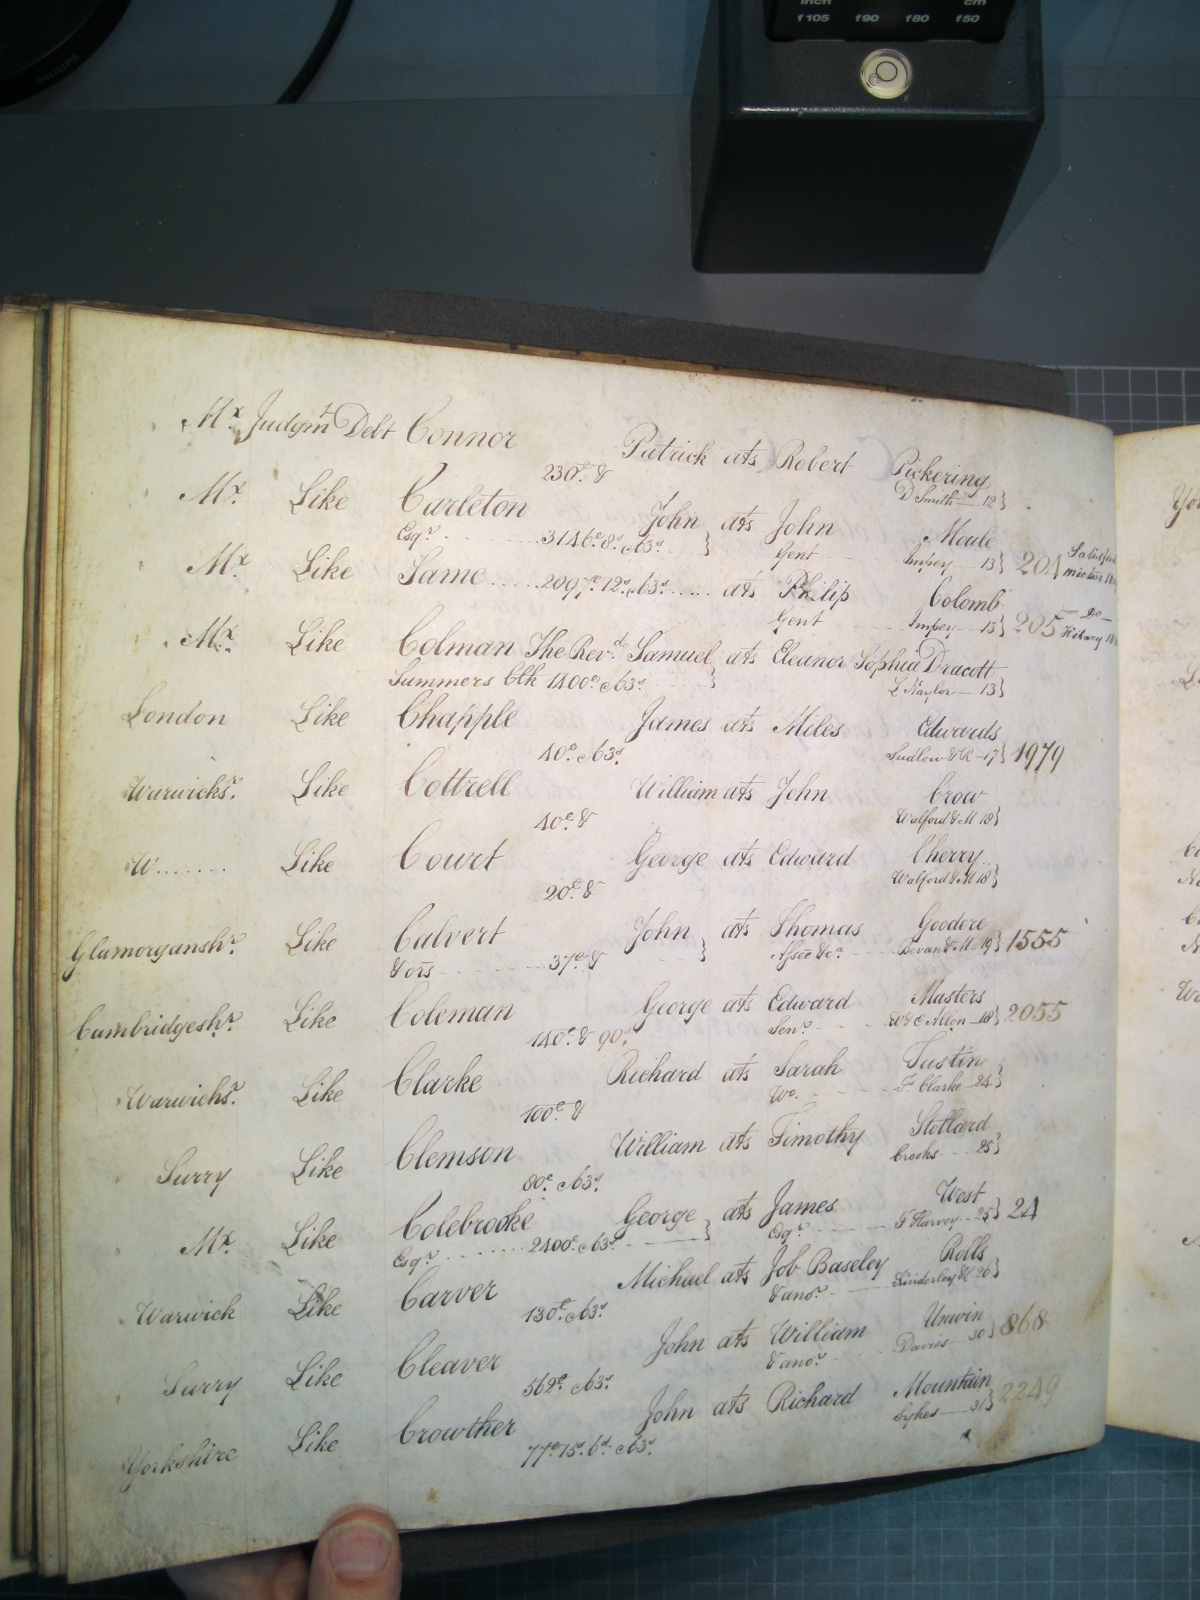 inch cm
f105 f90 f80 f50
PHILIPS
Mx. Judgmt Debt Connor Patrick ats Robert Pickering
230£ & D Smith 12}
Mx. Like Carleton John ats John Moule
Esqr. 3146£ 8s & 63s } Gent Impey 13} 204
Mx. Like Same 209£ 12s & 63s ats Philip Colomb
Gent Impey 13} 205 Do
Mx. Like Colman The Revd. Samuel ats Eleanor Sophia Dracott
Summers Clk 1400£ & 63s } 13}
London Like Chapple James ats Miles Edwards
40£ & 63s. Sudlow & R 17} 1979
Warwicks. Like Cottrell William ats John Crow
40£ & Walford & M 18}
W....... Like Court George ats Edward Cherry
20£ & Walford & M 18}
Glamorgansh. Like Calvert John ats Thomas Goodere
& ors 37£ & } Assee &c. Bevan & M 19} 1555
Cambridgesh. Like Coleman George ats Edward Masters
140£ & 90s Senr. W & C Allen 18} 2055
Warwichs. Like Clarke Richard ats Sarah Tustin
100£ & Wo. F Clarke 24}
Surry Like Clemson William ats Timothy Stollard
80£ & 63s. Crooks 25}
Mx. Like Colebrooke George ats James West
Esqr. 2400£ & 63s } Esqr. F Harvey 25} 24
Warwick Like Carver Michael ats Job Baseley Rolls
130£ & 63s & anor. Kinderley & C 26}
Surry Like Cleaver John ats William Unwin
562£ & 63s. & anor. Davies 30} 868
Yorkshire Like Crowther John ats Richard Mountain
77£ 15s. 6d & 63s. Sykes 31} 2249